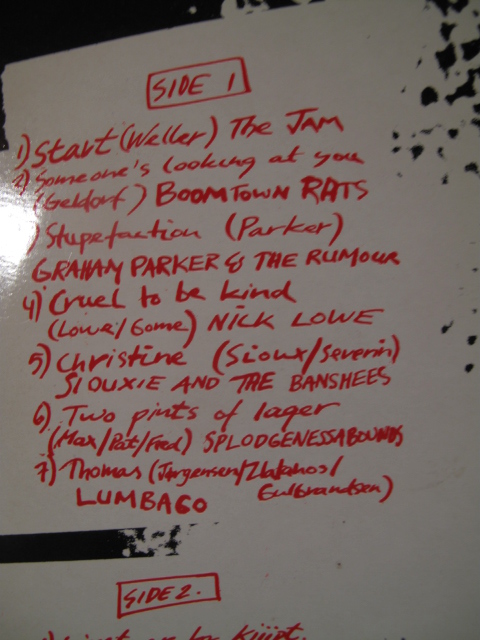 SIDE 1
1) Start (Weller) The JAM
2) Someone's looking at you
(Geldorf) BOOMTOWN RATS
) Stupefaction (Parker)
GRAHAM PARKER & THE RUMOUR
4) Cruel to be kind
(Lowe/Gome) NICK LOWE
5) Christine (Sioux/Severin)
SIOUXIE AND THE BANSHEES
6) Two pints of lager
(Max/Pat/Fred) SPLODGENESSABOUNDS
7) Thomas (Jørgensen/Zlatanos/
Gulbrandsen)
LUMBAGO
SIDE 2.